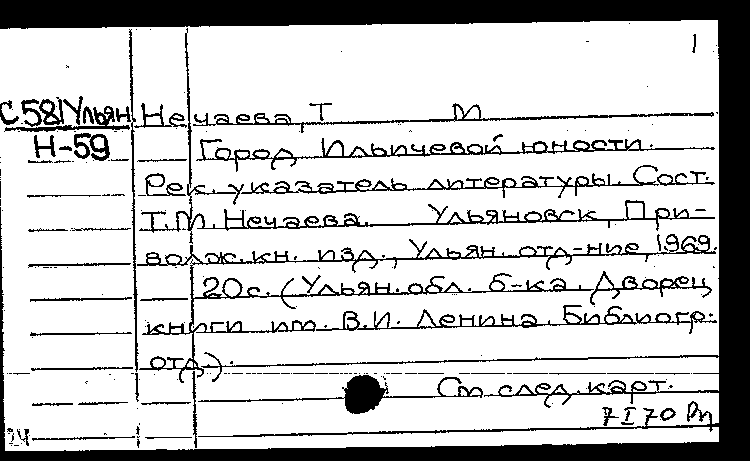 1
С58(Ульян. Нечаева, Т М
Н-59 Город Ильичевой юности.
Рек. указатель литературы. Сост.
Т.М. Нечаева. Ульяновск, При-
волж. кн. изд., Ульян. отд-ние, 1969.
20с. (Ульян. обл. б-ка. Дворец
книги им. В.И. Ленина. Библиогр.
отд.).
См след. карт.
7 I 70 Рп
24